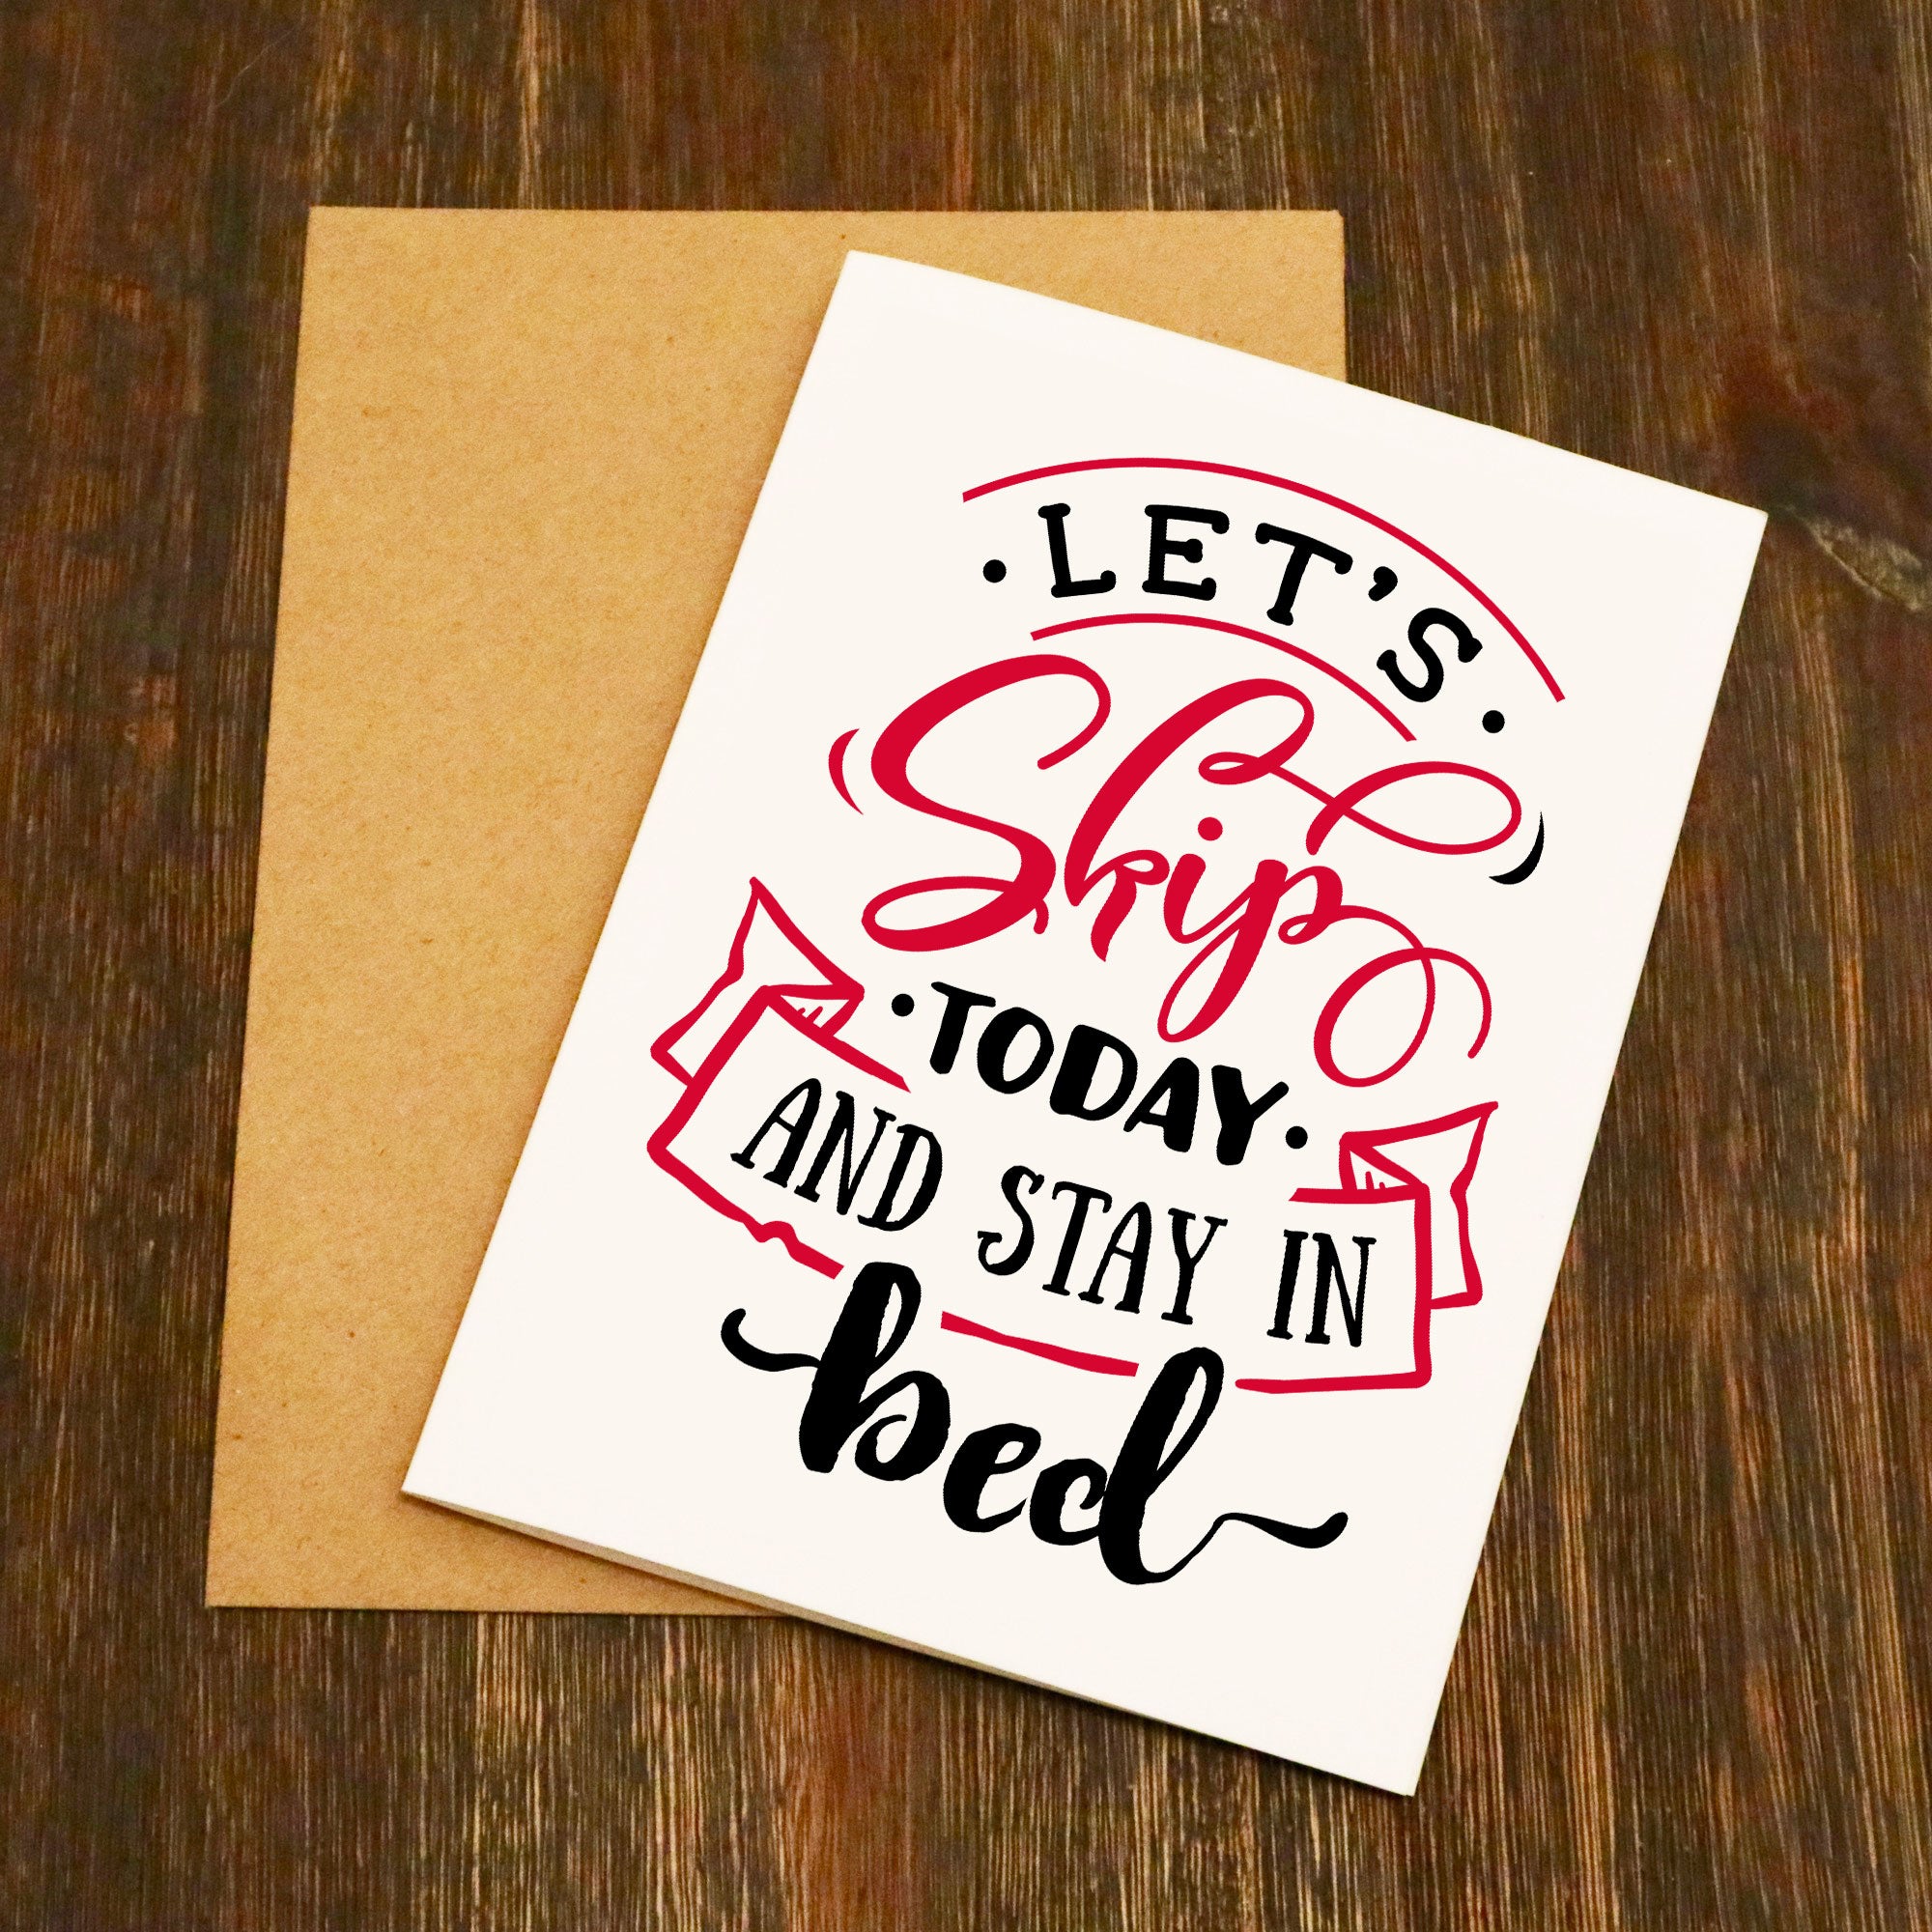 LET'S
Skip
TODAY
AND STAY IN
bed